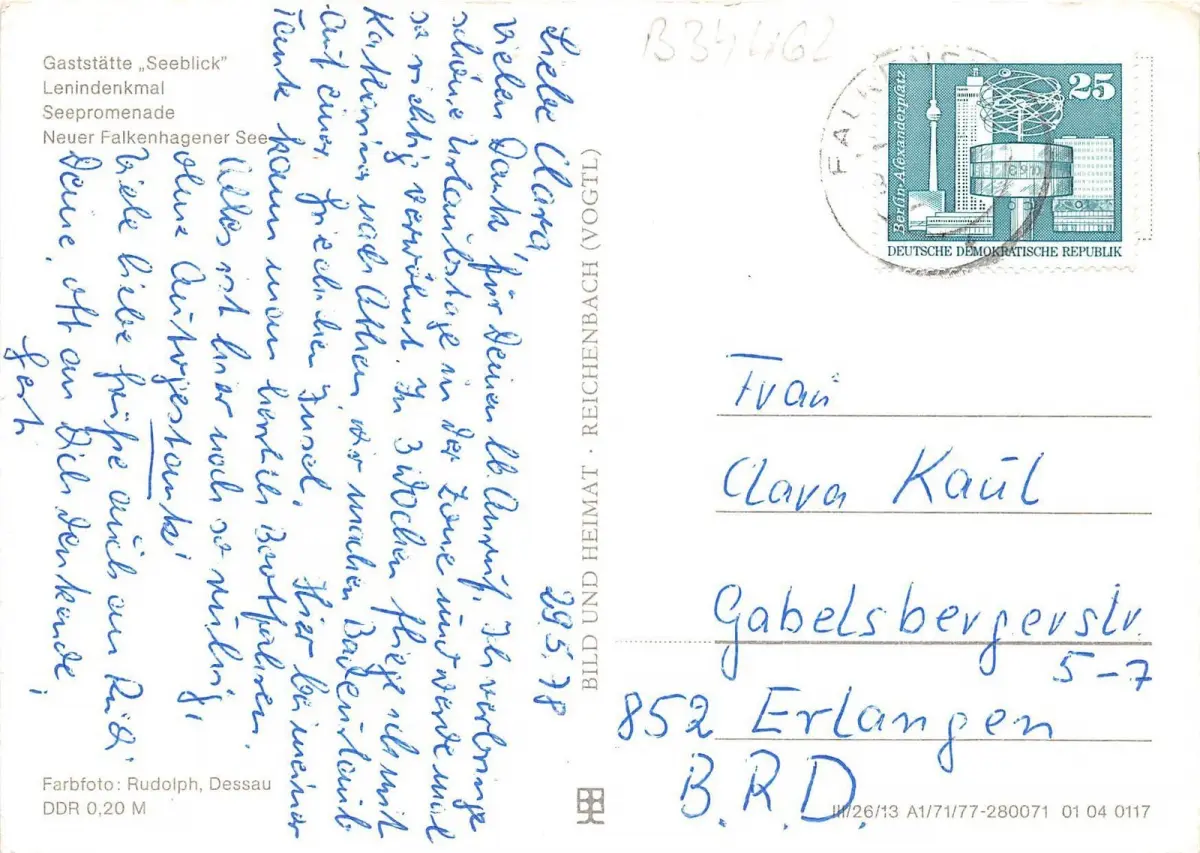 Gaststätte „Seeblick"
Lenindenkmal
Seepromenade
Neuer Falkenhagener See
29.5.78
Liebe Clara,
Vielen Dank für Deinen lb. Anruf. Ich verbringe
schöne Urlaubstage in der Zone und werde mal
so richtig verwöhnt. In 3 Wochen fliege ich mit
Katharina nach Athen, wir machen Badeurlaub
auf einer griechischen Insel. Hier bei meiner
Tante kann man herrlich Bootfahren.
Alles ist hier noch so ruhig,
ohne Autogestank!
Viele liebe Grüße auch an Rudi
Deine, oft an Dich denkende
Gerti
Farbfoto: Rudolph, Dessau
DDR 0,20 M
BILD UND HEIMAT · REICHENBACH (VOGTL)
B344162
FALKENSEE
Berlin-Alexanderplatz
25
DEUTSCHE DEMOKRATISCHE REPUBLIK
Frau
Clara Kaul
Gabelsbergerstr.
5-7
852 Erlangen
B.R.D.
III/26/13 A1/71/77-280071 01 04 0117